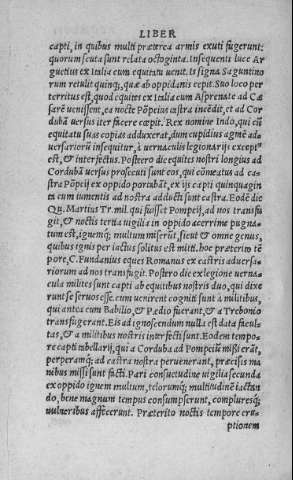 LIBER
capti, in quibus multi præterea armis exuti fugerunt:
quorum scuta sunt relata octoginta. Insequenti luce Ar
guetius ex Italia cum equitatu uenit. Is signa Saguntino
rum retulit quinq;, quæ ab oppidanis cepit. Suo loco per
territus est, quod equites ex Italia cum Asprenate ad Cæ
sarē uenissent, ea nocte Pōpeius castra incēdit, et ad Cor
dubā uersus iter facere cœpit. Rex nomine Indo, qui cū
equitatu suas copias adduxerat, dum cupidius agmē ad
uersariorū insequitur, à uernaculis legionarijs exceptꝰ
est, & interfectus. Postero die equites nostri longius ad
Cordubā uersus prosecuti sunt eos, qui cōmeatus ad ca
stra Pōpeij ex oppido portabāt, ex ijs capti quinquagin
ta cum iumentis ad nostra adducti sunt castra. Eodē die
Qu. Martius Tr. mil. qui fuisset Pompeij, ad nos transfu
git, & noctis tertia uigilia in oppido acerrime pugna
tum est, ignemq; multum miserūt, sicut & omne genus,
quibus ignis per iactus solitus est mitti. hoc præterito tē
pore, C. Fundanius eques Romanus ex castris aduersa-
riorum ad nos transfugit. Postero die ex legione uerna
cula milites sunt capti ab equitibus nostris duo, qui dixe
runt se seruos esse. cum uenirent cogniti sunt à militibus,
qui antea cum Babilio, & Pædio fuerant, & à Trebonio
transfugerant. Eis ad ignoscendum nulla est data facul
tas, & à militibus nostris interfecti sunt. Eodem tempo-
re capti tabellarij, qui a Corduba ad Pompeiū missi erāt,
perperamq; ad castra nostra peruenerant, præcisis ma
nibus missi sunt facti. Pari consuetudine uigilia secunda
ex oppido ignem multum, telorumq; multitudinē iactan
do, bene magnum tempus consumpserunt, compluresq;
uulneribus affecerunt. Præterito noctis tempore eru-
ptionem